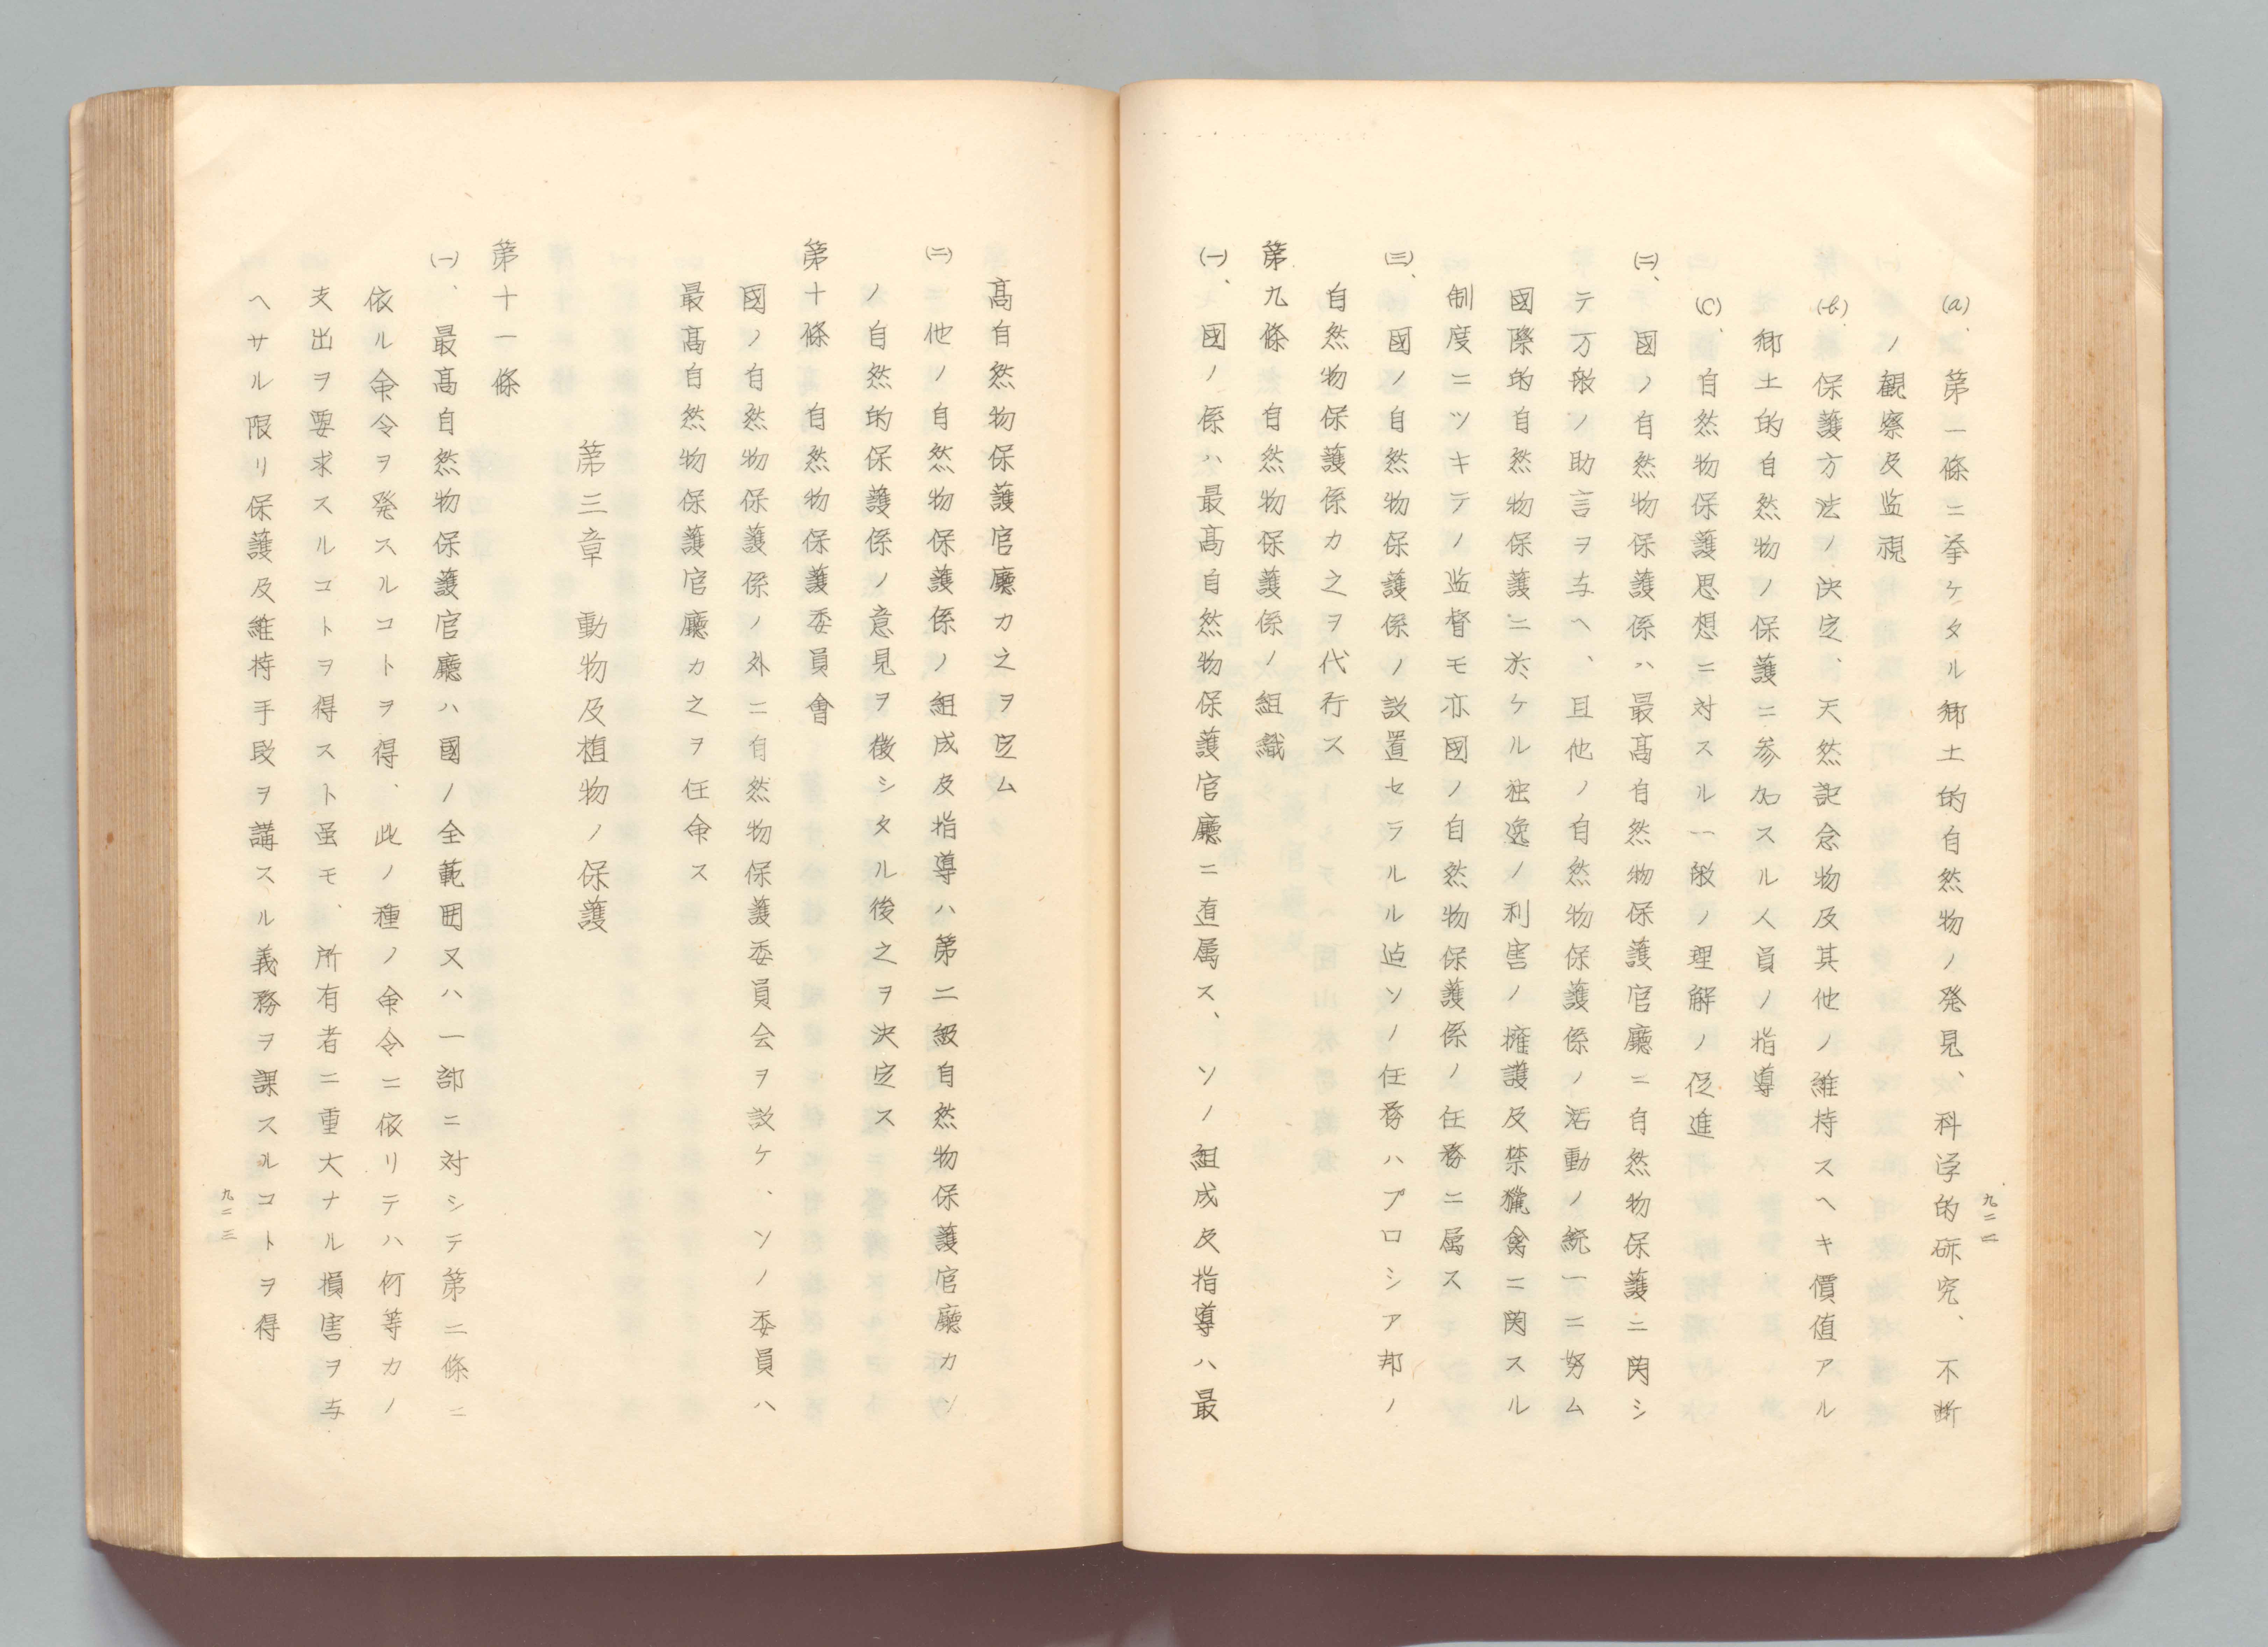 九二二
(a)、第一條ニ挙ケタル郷土的自然物ノ発見、科学的研究、不断
ノ観察及监視
(b)、保護方法ノ決定、天然記念物及其他ノ維持スヘキ價値アル
郷土的自然物ノ保護ニ参加スル人員ノ指導
(C)、自然物保護思想ニ対スル一般ノ理解ノ促進
㈡、國ノ自然物保護係ハ最髙自然物保護官廳ニ自然物保護ニ関シ
テ万般ノ助言ヲ与ヘ、且他ノ自然物保護係ノ活動ノ統一ニ努ム
國際的自然物保護ニ於ケル独逸ノ利害ノ擁護及禁獵禽ニ関スル
制度ニツキテノ监督モ亦國ノ自然物保護係ノ任務ニ属ス
㈢、國ノ自然物保護係ノ設置セラルル迠ソノ任務ハプロシア邦ノ
自然物保護係カ之ヲ代行ス
第九條 自然物保護係ノ組織
㈠、國ノ係ハ最髙自然物保護官廳ニ直属ス、ソノ組成及指導ハ最
髙自然物保護官廳カ之ヲ定ム
㈡ 他ノ自然物保護係ノ組成及指導ハ第二級自然物保護官廳カソ
ノ自然的保護係ノ意見ヲ徴シタル後之ヲ決定ス
第十條 自然物保護委員會
國ノ自然物保護係ノ外ニ自然物保護委員会ヲ設ケ、ソノ委員ハ
最髙自然物保護官廳カ之ヲ任命ス
第三章 動物及植物ノ保護
第十一條
㈠、最髙自然物保護官廳ハ國ノ全範囲又ハ一部ニ対シテ第二條ニ
依ル命令ヲ発スルコトヲ得、此ノ種ノ命令ニ依リテハ何等カノ
支出ヲ要求スルコトヲ得スト虽モ、所有者ニ重大ナル損害ヲ与
ヘサル限リ保護及維持手段ヲ講スル義務ヲ課スルコトヲ得
九二三